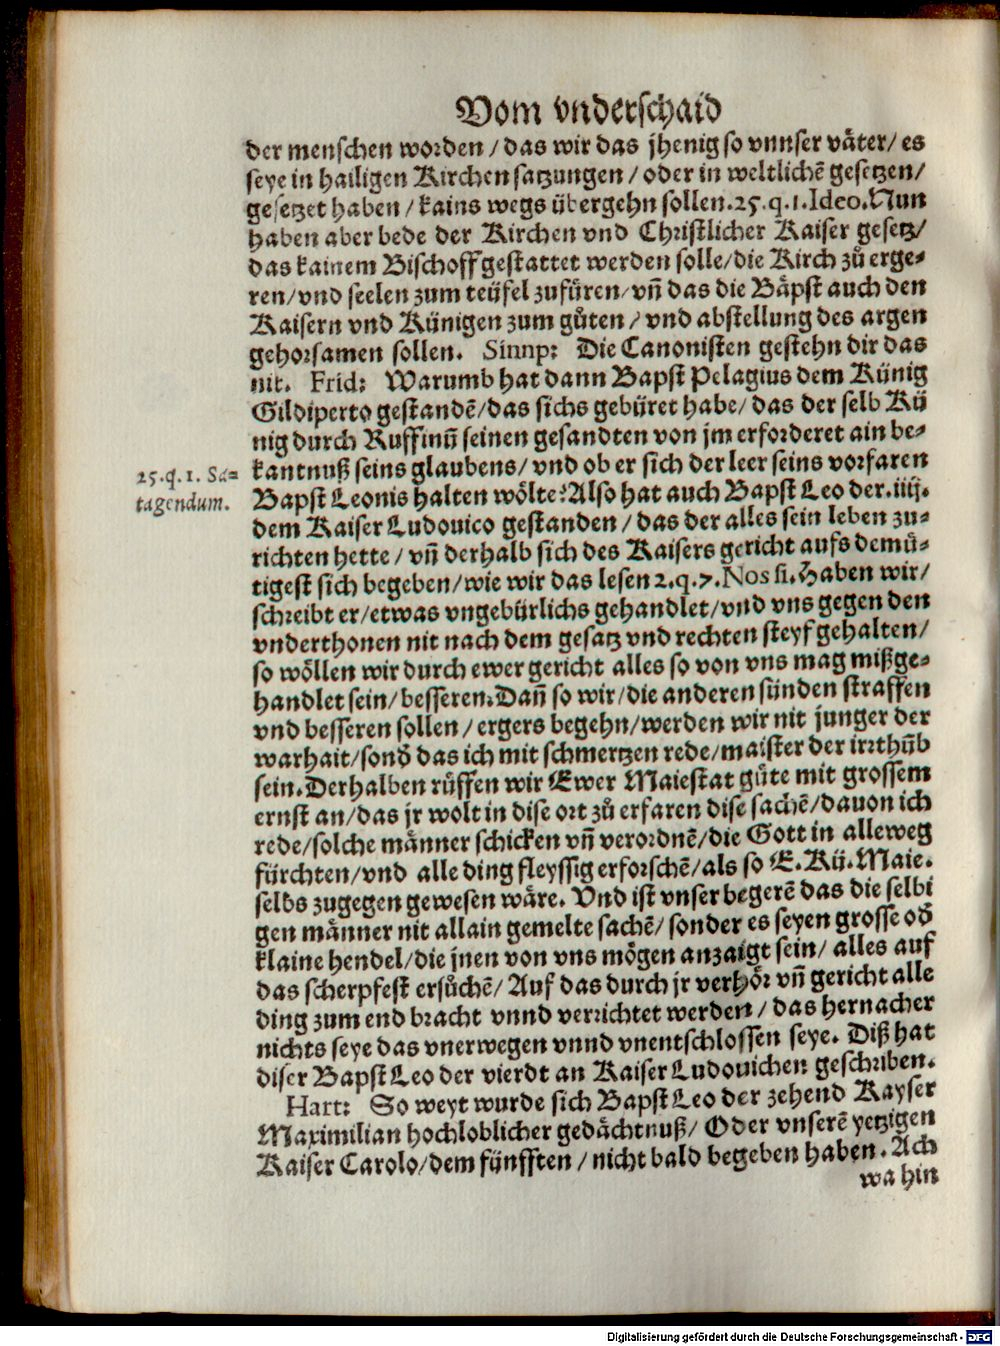 Vom vnderschaid
der menschen worden / das wir das jhenig so vnnser väter / es
seye in hailigen Kirchen satzungen / oder in weltlichē gesetzen /
gesetzet haben / kains wegs übergehn sollen. 25. q. 1. Ideo. Nun
haben aber bede der Kirchen vnd Christlicher Kaiser gesetz /
das kainem Bischoff gestattet werden solle / die Kirch zů erge-
ren / vnd seelen zum teüfel zufüren / vñ das die Bäpst auch den
Kaisern vnd Künigen zum gůten / vnd abstellung des argen
gehorsamen sollen. Sinnp: Die Canonisten gestehn dir das
nit. Frid: Warumb hat dann Bapst Pelagius dem Künig
Gildiperto gestandē / das sichs gebüret habe / das der selb Kü
nig durch Ruffinū seinen gesandten von jm erforderet ain be-
kantnuß seins glaubens / vnd ob er sich der leer seins vorfaren
25. q. 1. Sa=
tagendum.
Bapst Leonis halten wölte? Also hat auch Bapst Leo der. iiij.
dem Kaiser Ludouico gestanden / das der alles sein leben zu-
richten hette / vñ derhalb sich des Kaisers gericht aufs demü-
tigest sich begeben / wie wir das lesen 2. q. 7. Nos si. Haben wir /
schreibt er / etwas vngebürlichs gehandlet / vnd vns gegen den
vnderthonen nit nach dem gesatz vnd rechten steyf gehalten /
so wöllen wir durch ewer gericht alles so von vns mag mißge-
handlet sein / besseren. Dañ so wir / die anderen sünden straffen
vnd besseren sollen / ergers begehn / werden wir nit junger der
warhait / sonđ das ich mit schmertzen rede / maister der irrthūb
sein. Derhalben rüffen wir Ewer Maiestat güte mit grossem
ernst an / das jr wolt in dise ort zů erfaren dise sachē / dauon ich
rede / solche männer schicken vñ verordnē / die Gott in alleweg
fürchten / vnd alle ding fleyssig erforschē / als so E. Kü. Maie.
selbs zugegen gewesen wäre. Vnd ist vnser begerē das die selbi
gen männer nit allain gemelte sachē / sonder es seyen grosse ođ
klaine hendel / die jnen von vns mögen anzaigt sein / alles auf
das scherpfest ersůchē / Auf das durch jr verhör vñ gericht alle
ding zum end bracht vnnd verrichtet werden / das hernacher
nichts seye das vnerwegen vnnd vnentschlossen seye. Diß hat
diser Bapst Leo der vierdt an Kaiser Ludouichen geschriben.
Hart: So weyt wurde sich Bapst Leo der zehend Kayser
Maximilian hochloblicher gedächtnuß / Oder vnserē yetzigen
Kaiser Carolo / dem fünfften / nicht bald begeben haben. Ach
wa hin
Digitalisierung gefördert durch die Deutsche Forschungsgemeinschaft - DFG